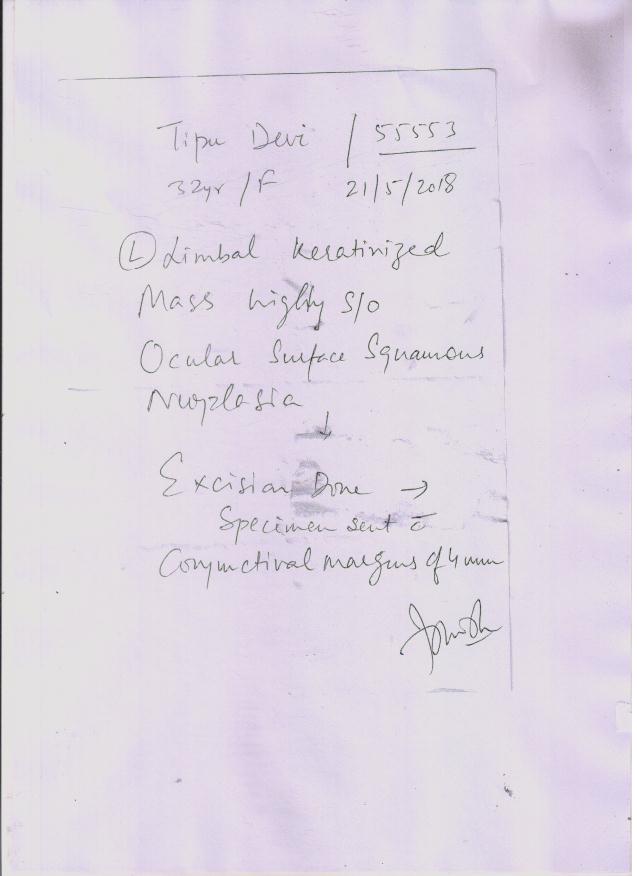 Tipu Devi / 55553
32yr / F 21/5/2018
(L) Limbal Keratinized
Mass highly S/O
Ocular Surface Squamous
Neoplasia
↓
Excision Done →
Specimen sent c̄
Conjunctival margins of 4 mm